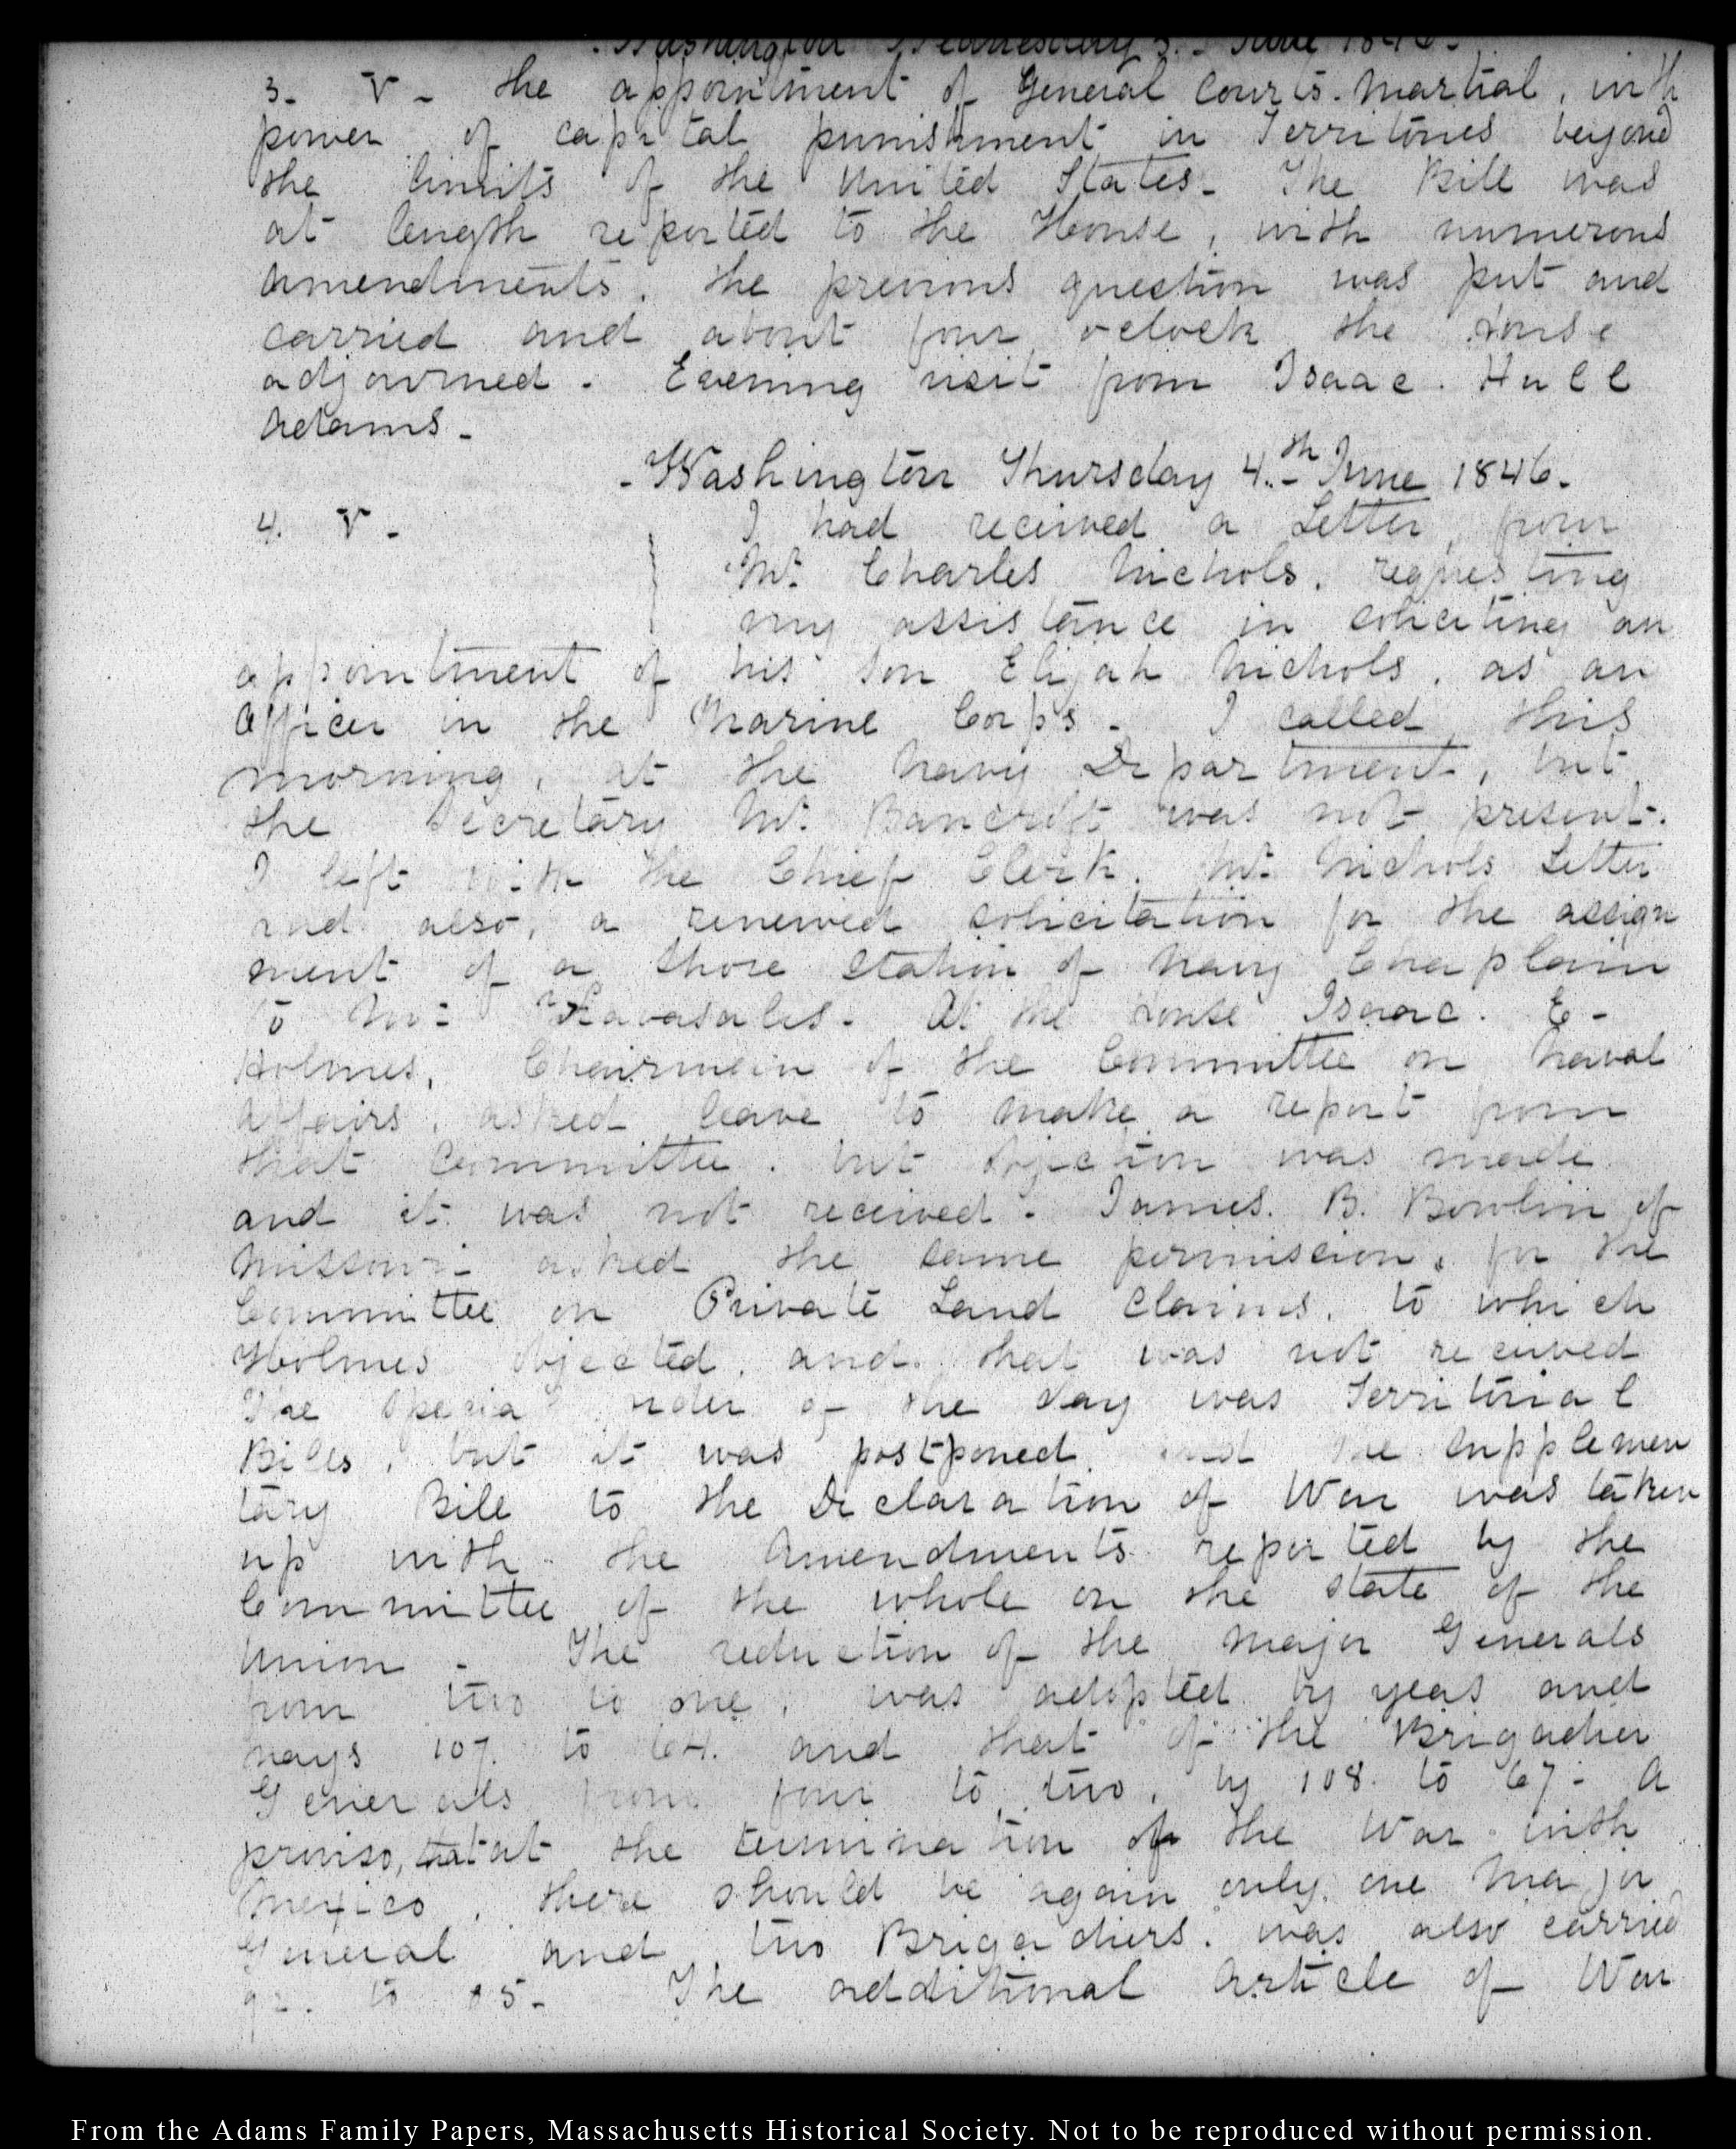 Washington Wednesday 3. June 1846.
3. V. the appointment of General Courts-Martial, with
power of capital punishment in Territories beyond
the limits of the United States. The Bill was
at length reported to the House, with numerous
amendments, the previous question was put and
carried and about four o'clock the House
adjourned. Evening visit from Isaac Hull
Adams.
Washington Thursday 4.th June 1846.
4. V. I had received a Letter, from
Mr. Charles Nichols, requesting
my assistance in soliciting an
appointment of his Son Elijah Nichols, as an
Officer in the Marine Corps. I called this
morning, at the Navy Department, but
the Secretary Mr. Bancroft was not present.
I left with the Chief Clerk, Mr. Nichols Letter
and also, a renewed solicitation for the assign
ment of a Shore Station of Navy Chaplain
to Mr. At the House Isaac. E.
Holmes, Chairman of the Committee on Naval
Affairs, asked leave to make a report from
that Committee, but objection was made
and it was not received. James. B. Bowlin of
Missouri asked the same permission, for the
Committee on Private Land Claims, to which
Holmes objected, and that was not received
The Special order of the day was Territorial
Bills, but it was postponed, and the Supplemen
tary Bill to the Declaration of War was taken
up with the Amendments reported by the
Committee of the whole on the state of the
Union. The reduction of the Major Generals
from two to one, was adopted by yeas and
nays 107. to 64. and that of the Brigadier
Generals from four to two, by 108. to 67. A
proviso, that at the termination of the War with
Mexico, there should be again only one Major
General and two Brigadiers, was also carried
to The additional Article of War